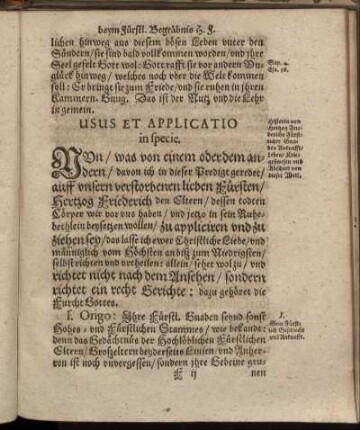 beym Fürstl. Begräbnis H. F.
lichen hinweg aus diesem bösen Leben vnter den
Sündern/ sie sind bald vollkommen worden/ vnd ihre
Seel gefelt Gott wol: Gott rafft sie vor andern Vn-
glück hinweg/ welches noch vber die Welt kommen
soll: Er bringt sie zum Friede/ vnd sie ruhen in ihren
Kammern. Gnug. Das ist der Nutz vnd die Lehr
in gemein.
Sap. 4.
Esa. 56.
USUS ET APPLICATIO
in specie.
Historia von
Hertzog
Fürst-
licher Gna-
den Ankunfft/
Leben/
vnd
Abschied von
dieser Welt.
NVn/ was von einem oder dem an-
dern/ davon ich in dieser Predigt geredet/
auff vnsern verstorbenen lieben Fürsten/
Hertzog Friederich den Eltern/ dessen todten
Cörper wir vor vns haben/ vnd jetzo in sein Ruhe-
bethlein beysetzen wollen/ zu appliciren vnd zu
ziehen sey/ das lasse ich ewer Christliche Liebe/ vnd
männiglich vom Höchsten an biß zum Niedrigsten/
selbst richten vnd vrtheilen: allein/ sehet wol zu/ vnd
richtet nicht nach dem Ansehen/ sondern
richtet ein recht Gerichte: dazu gehöret die
Furcht Gottes.
I. Origo: Ihre Fürstl. Gnaden seynd sonst
Hohes- vnd Fürstlichen Stammes/ wie bekandt:
denn das Gedächtnüs der Hochlöblichen Fürstlichen
Eltern/ Großeltern beyderseits Linien/ vnd Anher-
ren ist noch vnvergessen/ sondern ihre Gebeine gru-
I.
Sein Fürst-
lich Geschlecht
vnd Ankunfft.
E ij
nen